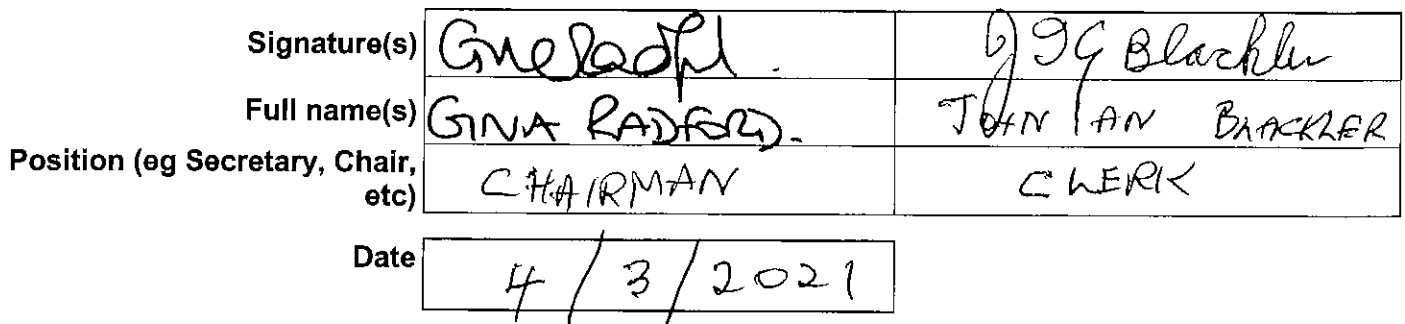 Signature(s) GMeRadfd. JIG Blackler
Full name(s) GINA RADFORD. JOHN IAN BLACKLER
Position (eg Secretary, Chair, etc) CHAIRMAN CLERK
Date 4/3/2021